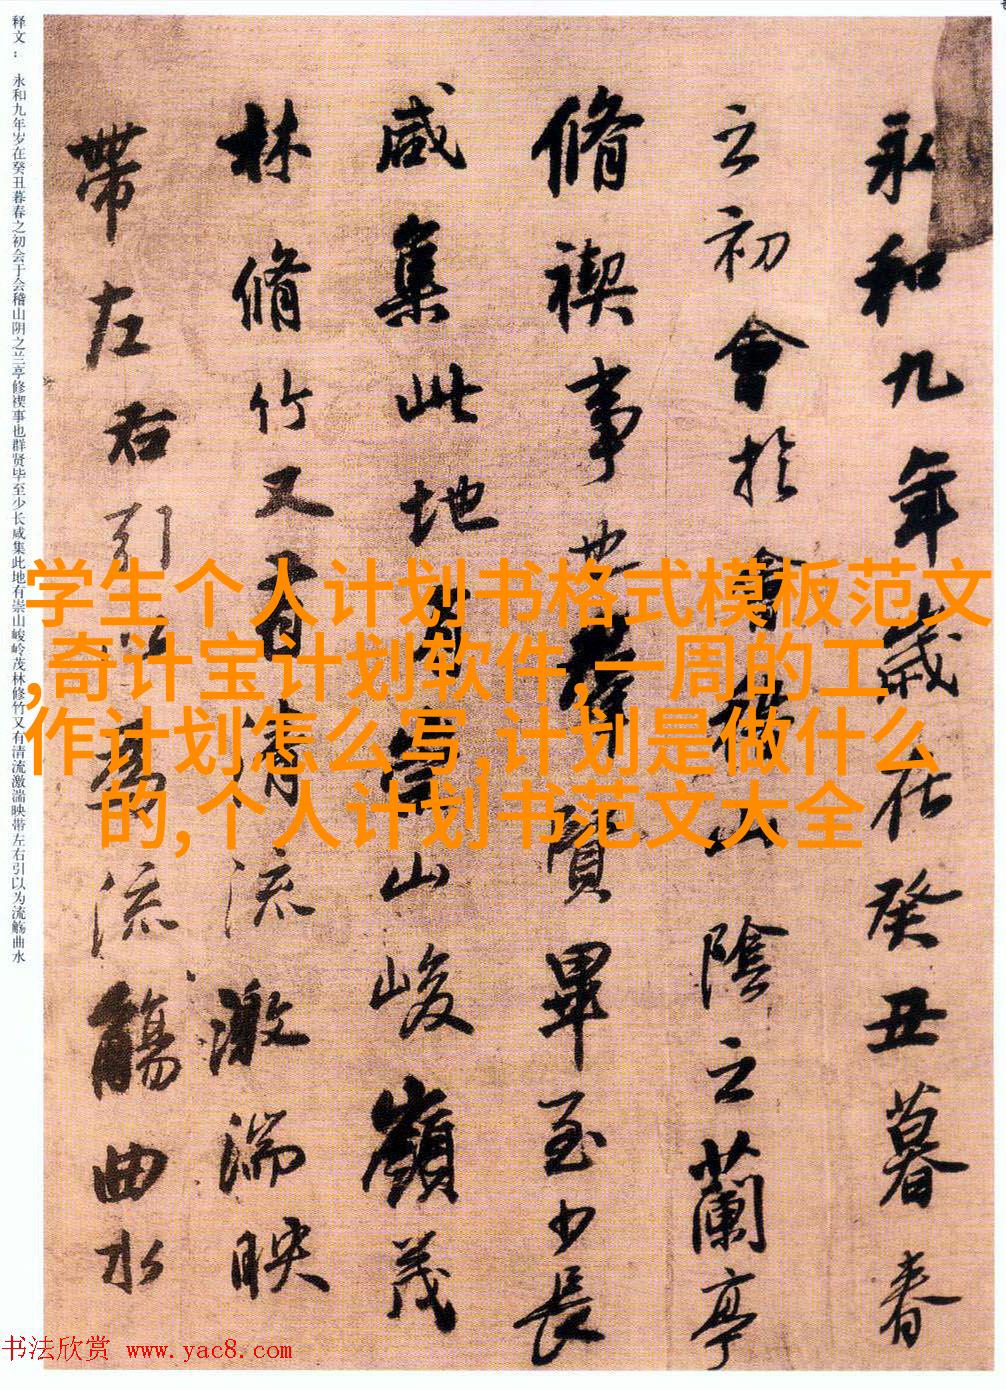 永和九年歲在癸丑暮春
之初會於會稽山陰之蘭亭
脩禊事也羣賢畢至少長
咸集此地有崇山峻嶺茂
林脩竹又有清流激湍映
帶左右引以為流觴曲水
释文：永和九年岁在癸丑暮春之初会于会稽山阴之兰亭修禊事也群贤毕至少长咸集此地有崇山峻岭茂林修竹又有清流激湍映带左右引以为流觞曲水
学生个人计划书格式模板范文
,奇计宝计划软件,一周的工
作计划怎么写,计划是做什么
的,个人计划书范文大全
书法欣赏 www.yac8.com